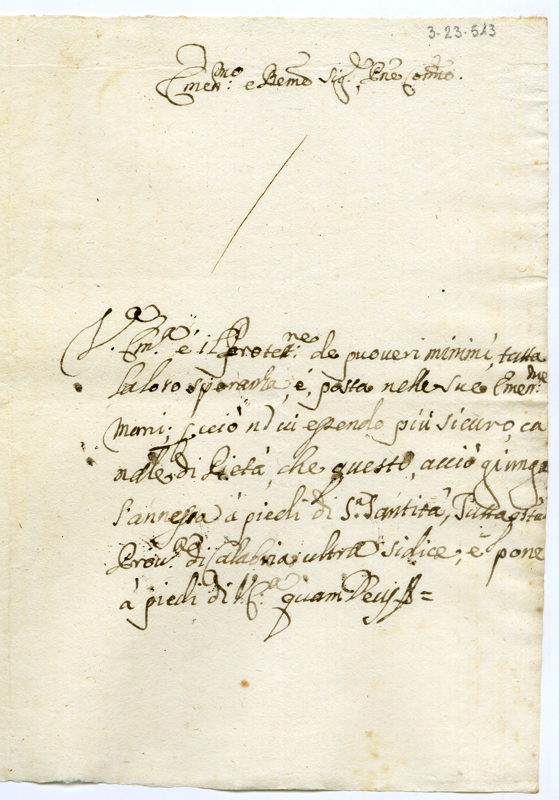 3-23-513
Emen:mo e Remo Sig.r Pne Colmo.
V.a Em.a è il Protett:re de puoveri minimi, tutta
la loro speranza, è, posta nelle sue Emen:me
mani; Perciò nō ui essendo più sicuro, ca
nale, di Pietà, che questo, acciò giunga
l'annessa à piedi di S.a Santità, Tutta q.sta
Prou.a di Calabria ultra si dice, e pone
à piedi di V.a quam Deus &=